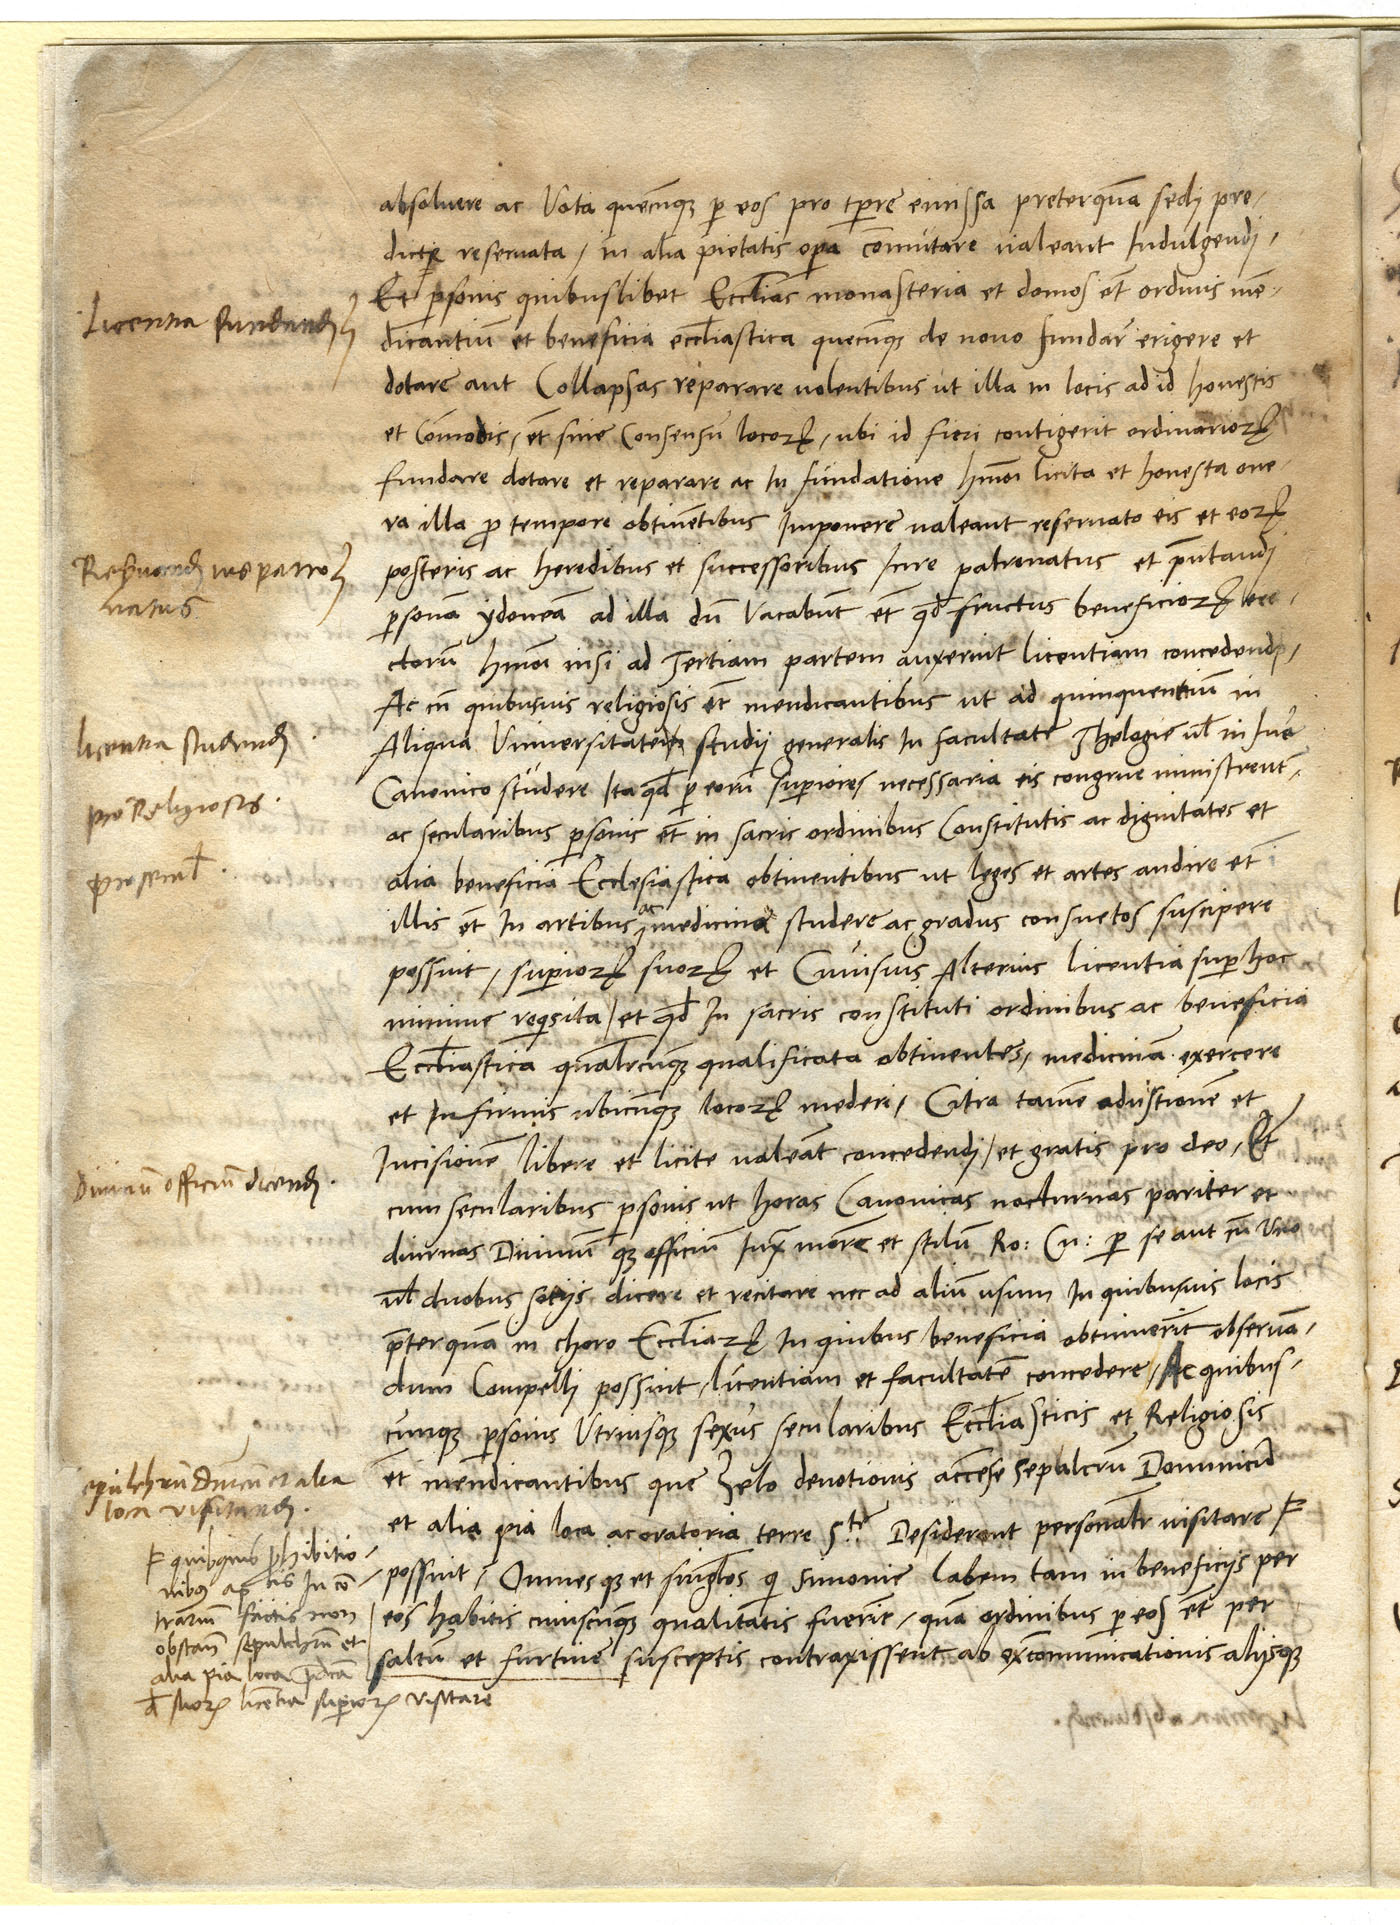 absoluere ac Vota quecu̅q̅ꝫ ꝑ eos pro tp̅re emissa preterqua̅ sedj pre/
dicte reseruata / in alia pietatis op̅a co̅mutare ualeant Indulgendj /
Et ꝑsonis quibuslibet Eccl̅ias monasteria et domos et̅ ordinis me̅-
dicantiu̅ et beneficia eccl̅iastica quecu̅qꝫ de nouo fundar̅ erigere et
dotare aut Collapsas reparare uolentibus ut illa in locis ad id honestis
et Co̅modis / et̅ sine Consensu locoꝝ / ubi id fieri contigerit ordinarioꝝ
fundare dotare et reparare ac In fundatione hmo̅i licita et honesta one-
ra illa ꝓ tempore obtine̅tibus Imponere ualeant reseruato eis et eoꝝ
posteris ac heredibus et successoribus Iure patronatus et p̅ntandj
ꝑsona̅ ydonea̅ ad illa du̅ Vacabu̅t et̅ qd̅ fructus beneficioꝝ ere-
ctoru̅ hmo̅i insi ad Tertiam partem auxerint licentiam concedendj /
Ac cu̅ quibusuis religiosis et̅ mendicantibus ut ad quinquenniu̅ in
Aliqua Vniuersitate studij generalis In facultate Theologie ul̅ in Iure
Canonico studere Ita qd̅ ꝑ eoru̅ suꝑiores necessaria eis congrue ministrent̅
ac secularibus ꝑsonis et̅ in sacris ordinibus Constitutis ac dignitates et
alia beneficia Ecclesiastica obtinentibus ut leges et artes audire et i
illis et̅ In artibus ac medicina studere ac gradus consuetos suscipere
possint / suꝑioꝝ suoꝝ et Cuiusuis Alterius licentia suꝑ hoc
minime requisita / et qd̅ In sacris constituti ordinibus ac beneficia
Eccl̅iastica qual̅rcu̅qꝫ qualificata obtinentes / medicina̅ exercere
et Infirmis ubicu̅qꝫ locoꝝ mederi / Citra tame̅ adustione̅ et
Incisione̅ libere et licite ualea̅t concedendj / et gratis pro deo / Et
cum secularibus ꝑsonis ut horas Canonicas nocturnas pariter et
diurnas Diuinu̅ qꝫ officiu̅ Iux̅ more̅ et stilu̅ Ro: Cu: ꝑ se aut cu̅ Vno
ul̅ duobus socijs dicere et recitare nec ad aliu̅ usum In quibusuis locis
p̅terqua̅ in choro Eccl̅iaꝝ In quibus beneficia obtinueri̅t obserua̅/
dum Compellj possint / licentiam et facultate̅ concedere / Ac quibus-
cunqꝫ ꝑsonis Vtriusqꝫ sexus secularibus Eccl̅iasticis et Religiosis
et̅ mendicantibus que Zelo deuotionis acce̅se Sepulcru̅ Dominicu̅
et alia pia loca ac oratoria terre S.te Desiderant personal̅r uisitare
possint / Omnes qꝫ et singl̅os q̅ Simonie labem tam in beneficijs per
eos habitis cuiuscu̅qꝫ qualitatis fueri̅t / qua̅ ordinibus ꝑ eos et̅ per
saltu̅ et furtiue susceptis contraxissent ab exco̅municationis alijsqꝫ
Licentia fundandj
Reseruandj ius patro
natus
licentia studendj
pro Religiosis.
Diuinu̅ officiu̅ dicendj.
epulchru̅ Dnicu̅ et alia
loca uisitandj.
quibq̅uis ꝓhibitio-
nibus ap̅lis In co̅
trariu̅ factis non
obstan̅ sepulchru̅ et
alia pia loca p̅dicta
suoꝝ lice̅tia suꝑioꝝ visitare